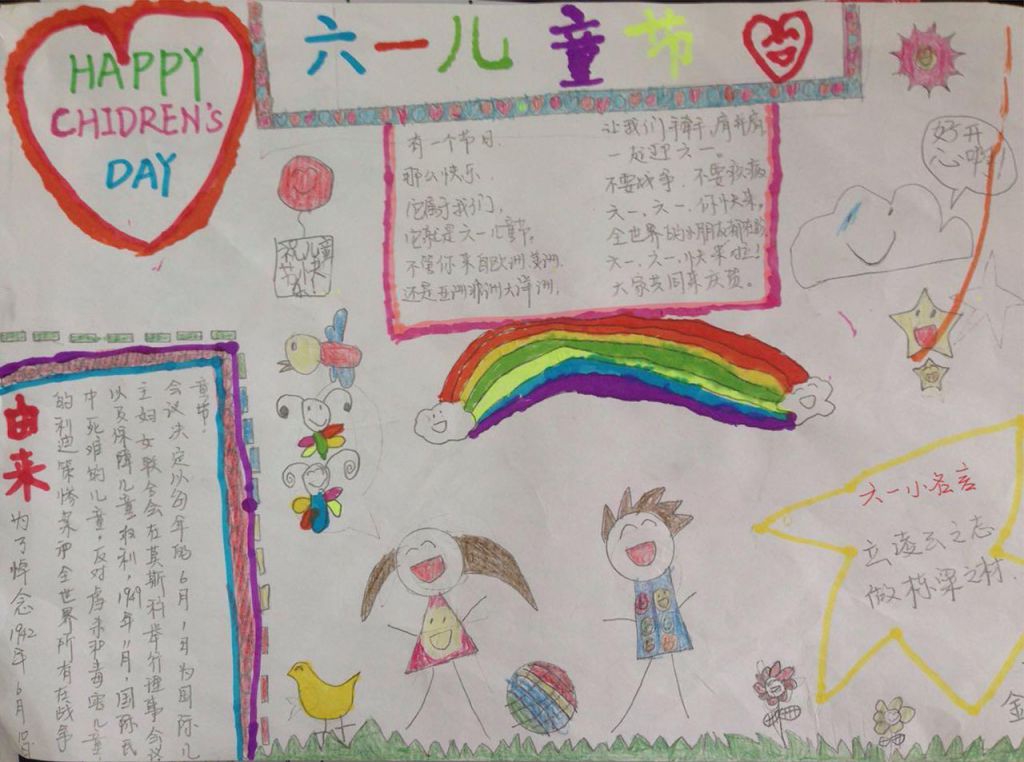 HAPPY
CHIDREN'S
DAY
六一儿童节
有一个节日.
那么快乐.
它属于我们,
它就是六一儿童节,
不管你来自欧洲美洲.
还是亚洲非洲大洋洲.
让我们手牵手,肩并肩
一起迎六一。
不要战争.不要疾病
六一,六一,你快来,
全世界的小朋友都在盼
六一,六一,快来啦!
大家共同来庆贺。
好开
心啊!
祝儿童
节快
乐
由来
为了悼念1942年6月
的利迪策惨案和全世界所有在战争
中死难的儿童,反对虐杀和毒害儿童,
以及保障儿童权利,1949年11月,国际民
主妇女联合会在莫斯科举行理事会议
会议决定以每年的6月1日为国际儿
童节.
六一小名言
立凌云之志
做栋梁之材.
金